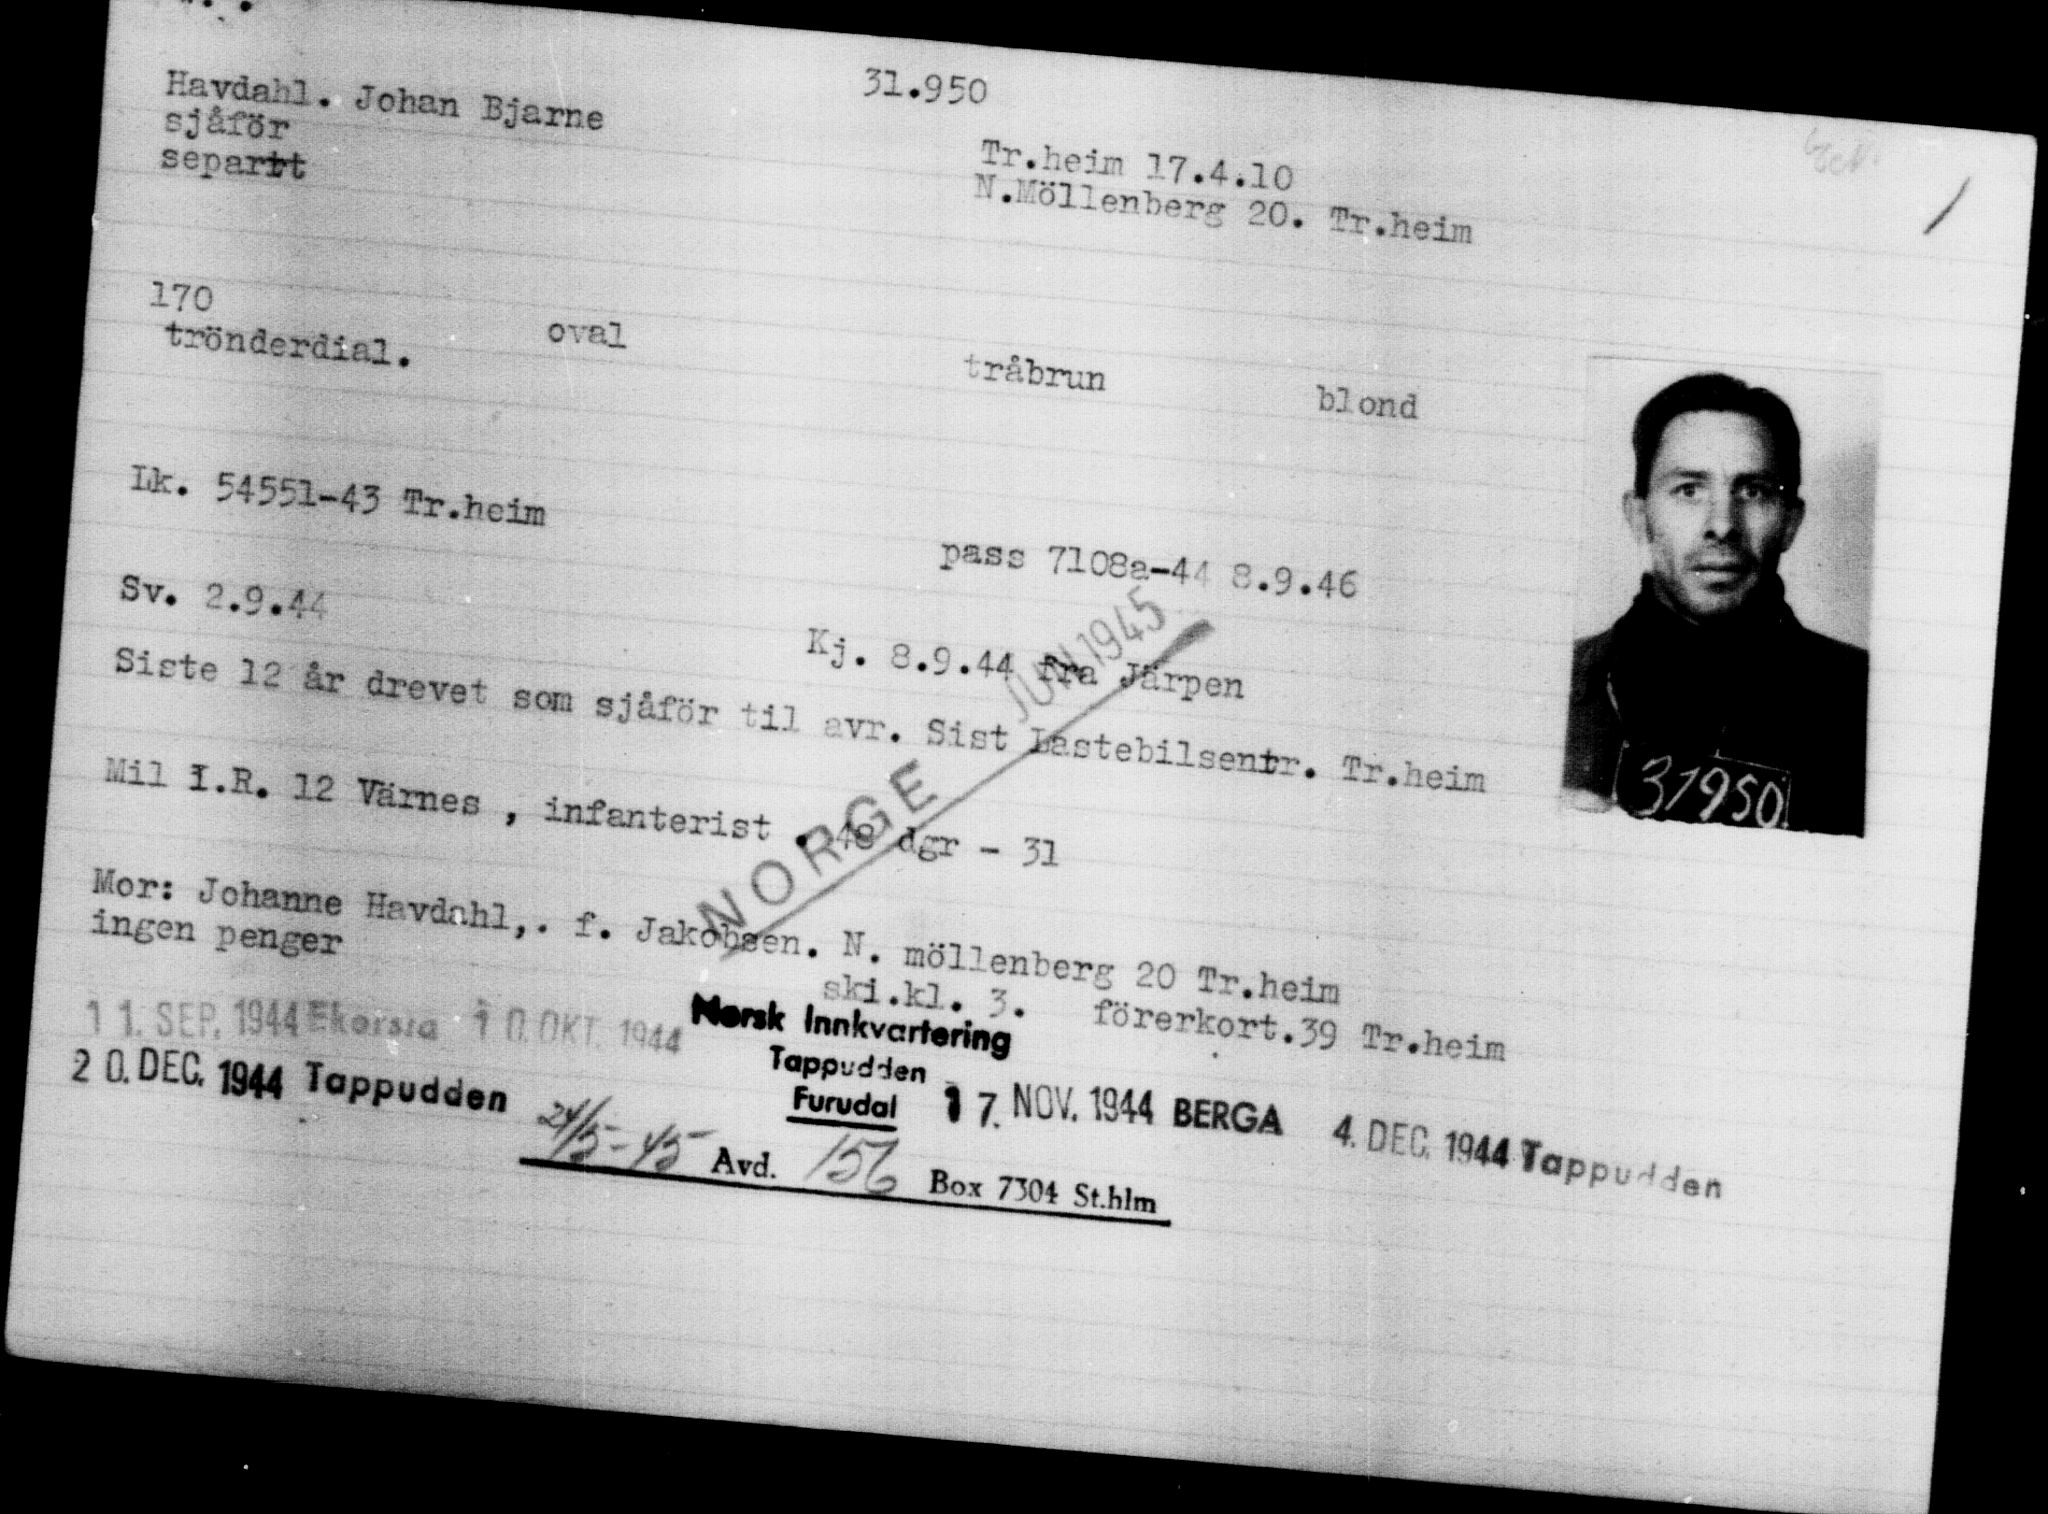 Havdahl. Johan Bjarne 31.950
sjåför
separrt
Tr.heim 17.4.10
N.Möllenberg 20. Tr.heim
170
trönderdial. oval tråbrun blond
Lk. 54551-43 Tr.heim
pass 7108a-44 8.9.46
Sv. 2.9.44
Kj. 8.9.44 fra Järpen
JUNI 1945
Siste 12 år drevet som sjåför til avr. Sist Lastebilsentr. Tr.heim
31950
Mil I.R. 12 Värnes , infanterist . 48 dgr - 31
NORGE
Mor: Johanne Havdahl,. f. Jakobsen. N. möllenberg 20 Tr.heim
ingen penger
ski.kl. 3. förerkort.39 Tr.heim
11. SEP. 1944 Ekorsia 10. OKT. 1944 Norsk Innkvartering
Tappudden
Furudal
17. NOV. 1944 BERGA 4. DEC. 1944 Tappudden
20. DEC. 1944 Tappudden
24/5-45 Avd. 156 Box 7304 St.hlm